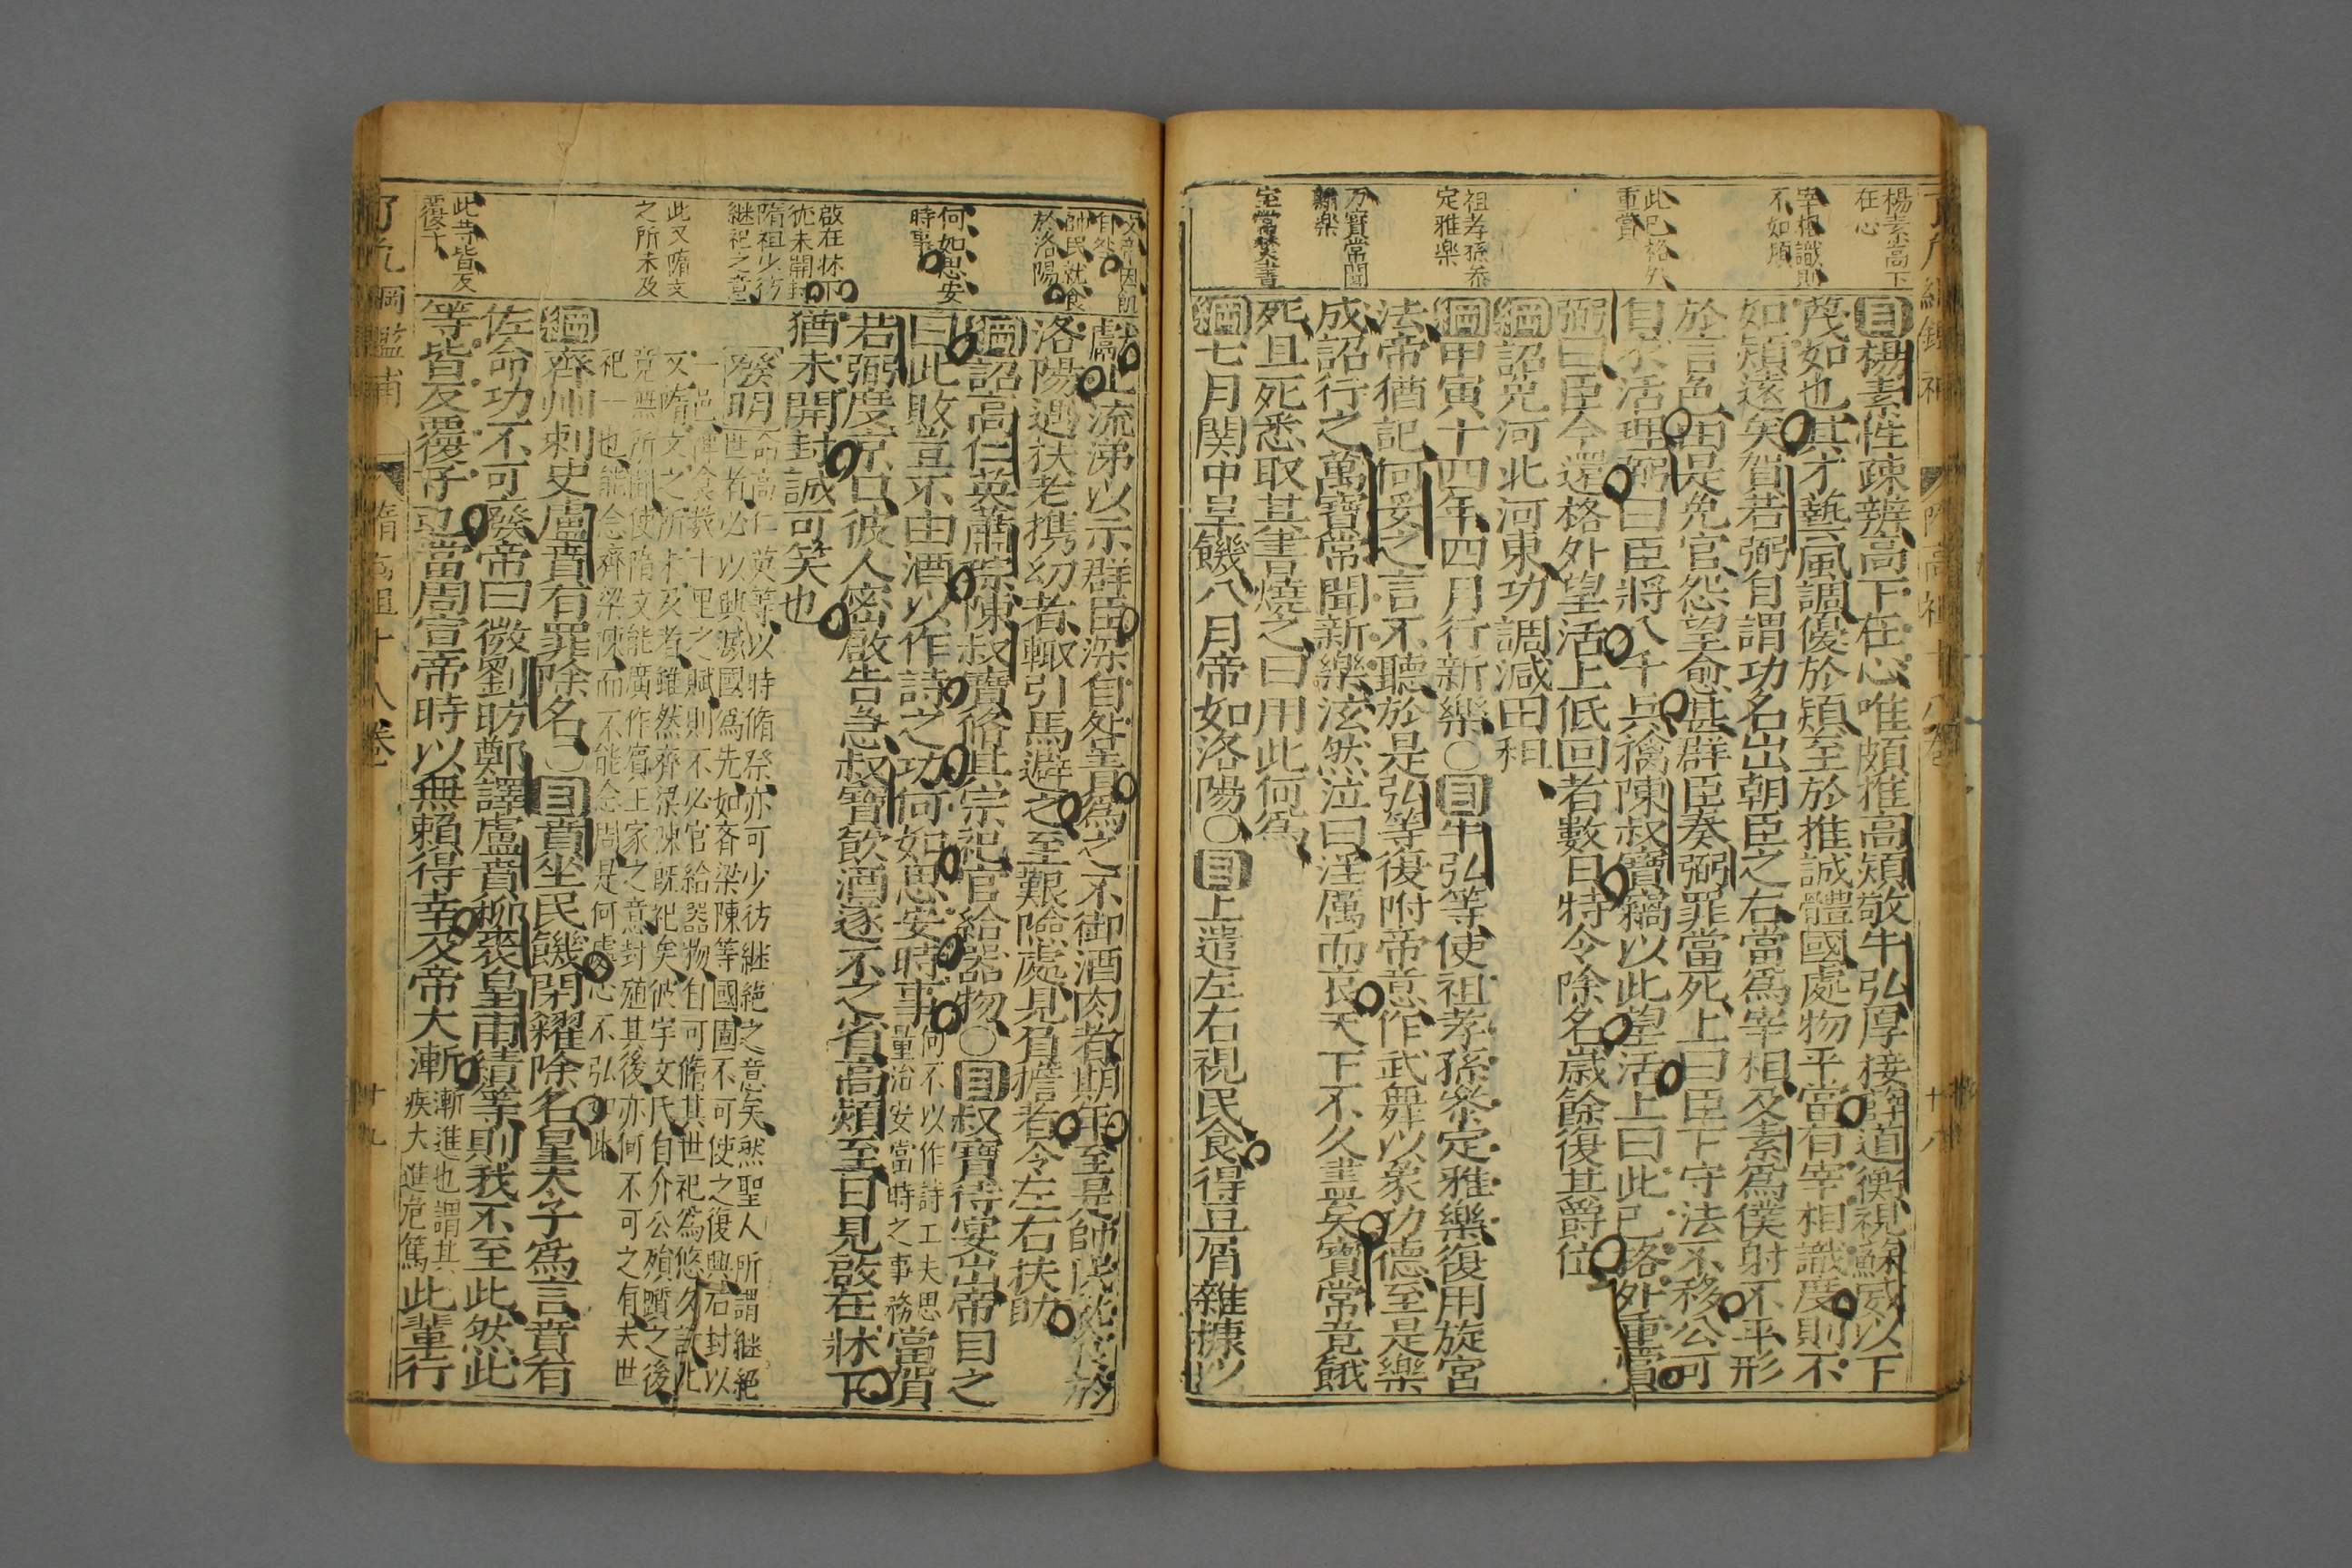 楊素高下
在心
宰相識則
不如熲
此已格外
重賞
祖孝孫參
定雅樂
万寶常聞
新樂
宝常焚書
目楊素性疎辨高下在心唯頗推高熲敬牛弘厚接薛道衡視蘇威以下
蔑如也其才藝風調優於熲至於推誠體國處物平當有宰相識度則不
如熲遠矣賀若弼自謂功名出朝臣之右當爲宰相及素爲僕射不平形
於言色由是免官怨望愈甚群臣奏弼罪當死上曰臣下守法不移公可
自求活理弼曰臣將八千兵擒陳叔寶竊以此望活上曰此已格外重賞
弼曰臣今還格外望活上低回者數日特令除名歲餘復其爵位
綱詔免河北河東功調減田租
綱甲寅十四年四月行新樂〇目牛弘等使祖孝孫參定雅樂復用旋宮
法帝猶記何妥之言不聽於是弘等復附帝意作武舞以象功德至是樂
成詔行之萬寶常聞新樂泫然泣曰淫厲而哀天下不久盡矣寶常竟餓
死且死悉取其書燒之曰用此何爲
綱七月関中旱饑八月帝如洛陽〇目上遣左右視民食得豆屑雜糠以
文帝因飢
自咎
帥民就食
於洛陽
何如思安
時事
啟在牀下
猶未開封
隋祖少彷
継祀之意
此又隋文
之所未及
此等皆反
覆子
獻上流涕以示群臣深自咎責爲之不御酒肉者期年至是帥民就食於
洛陽遇扶老携幼者輙引馬避之至艱險處見負擔者令左右扶助
綱詔高仁英蕭琮陳叔寶脩其宗祀官給器物〇目叔寶侍宴出帝目之
曰此敗豈不由酒以作詩之功何如思安時事何不以作詩工夫思量治安當時之事務當賀
若弼度京口彼人密啟告急叔寶飲酒遂不之省高熲至日見啟在牀下
猶未開封誠可笑也
發明命高仁英等以時脩祭亦可少彷継絶之意矣然聖人所謂継絶
世者必以興滅國爲先如齊梁陳等國固不可使之復興若封以
一邑俾食數十里之賦則不必官給器物自可脩其世祀爲悠久計此
又隋文之所未及者雖然齊梁陳既祀矣彼宇文氏自介公殞蹟之後
竟無所聞使隋文能廣作賓王家之意封殖其後亦何不可之有夫世
祀一也能念齊梁陳而不能念周是何處心不弘如此
綱齊州刺史盧賁有罪除名〇目賁坐民饑閉糴除名皇太子爲言賁有
佐命功不可廢帝曰微劉昉鄭譯盧賁柳裘皇甫績等則我不至此然此
等皆反覆子也當周宣帝時以無賴得幸及帝大漸漸進也謂其疾大進危篤此輩行
了凡綱鑑補
隋高祖十八卷
十九